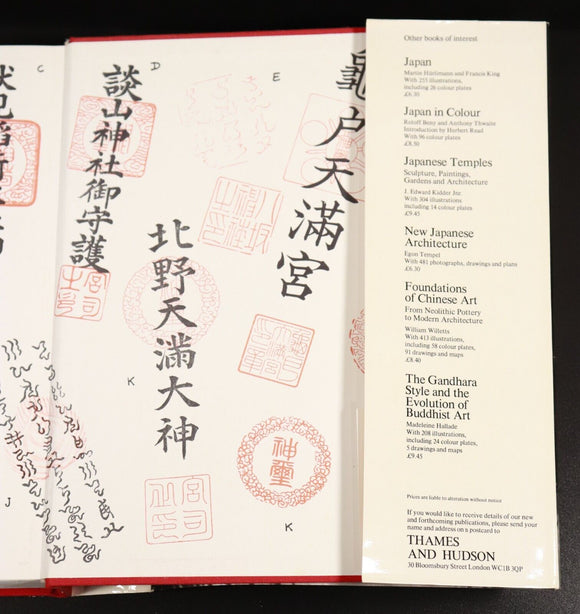 C
D
E
談山神社御守護
北野天滿大神
戸天滿宮
神璽
宮司
之印
K
K
J
Other books of interest
Japan
Martin Hürlimann and Francis King
With 255 illustrations,
including 26 colour plates
£6.30
Japan in Colour
Roloff Beny and Anthony Thwaite
Introduction by Herbert Read
With 96 colour plates
£8.50
Japanese Temples
Sculpture, Paintings,
Gardens and Architecture
J. Edward Kidder Jnr
With 304 illustrations
including 14 colour plates
£9.45
New Japanese
Architecture
Egon Tempel
With 481 photographs, drawings and plans
£6.30
Foundations
of Chinese Art
From Neolithic Pottery
to Modern Architecture
William Willetts
With 413 illustrations,
including 58 colour plates,
91 drawings and maps
£8.40
The Gandhara
Style and the
Evolution of
Buddhist Art
Madeleine Hallade
With 208 illustrations,
including 24 colour plates,
5 drawings and maps
£9.45
Prices are liable to alteration without notice
If you would like to receive details of our new
and forthcoming publications, please send your
name and address on a postcard to
THAMES
AND HUDSON
30 Bloomsbury Street London WC1B 3QP